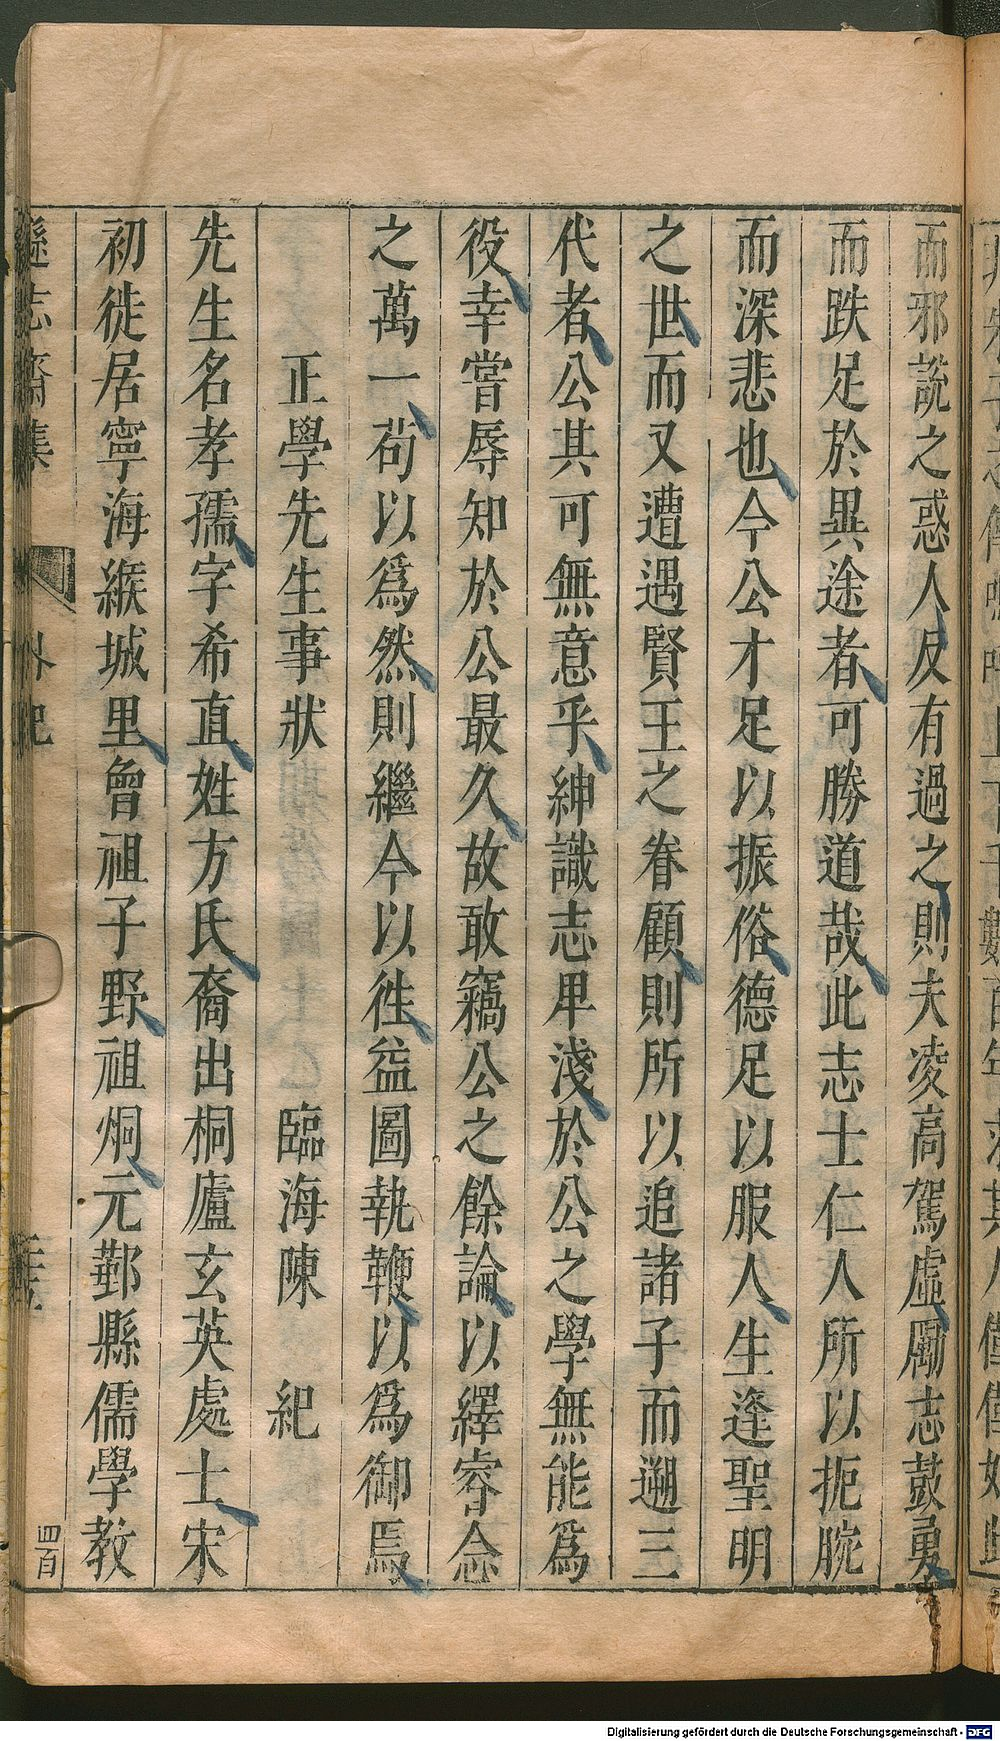 而邪說之惑人反有過之則夫凌高駕虛勵志鼓勇
而跌足於異途者可勝道哉此志士仁人所以扼腕
而深悲也今公才足以振俗德足以服人生逢聖明
之世而又遭遇賢王之眷顧則所以追諸子而遡三
代者公其可無意乎紳識志卑淺於公之學無能爲
役幸嘗辱知於公最久故敢竊公之餘論以繹睿念
之萬一苟以爲然則繼今以徃益圖執鞭以爲御焉
正學先生事狀 臨海陳 紀
先生名孝孺字希直姓方氏裔出桐廬玄英處士宋
初徙居寧海緱城里曾祖子野祖炯元鄞縣儒學教
遜志齋集 外紀
四百
Digitalisierung gefördert durch die Deutsche Forschungsgemeinschaft - DFG